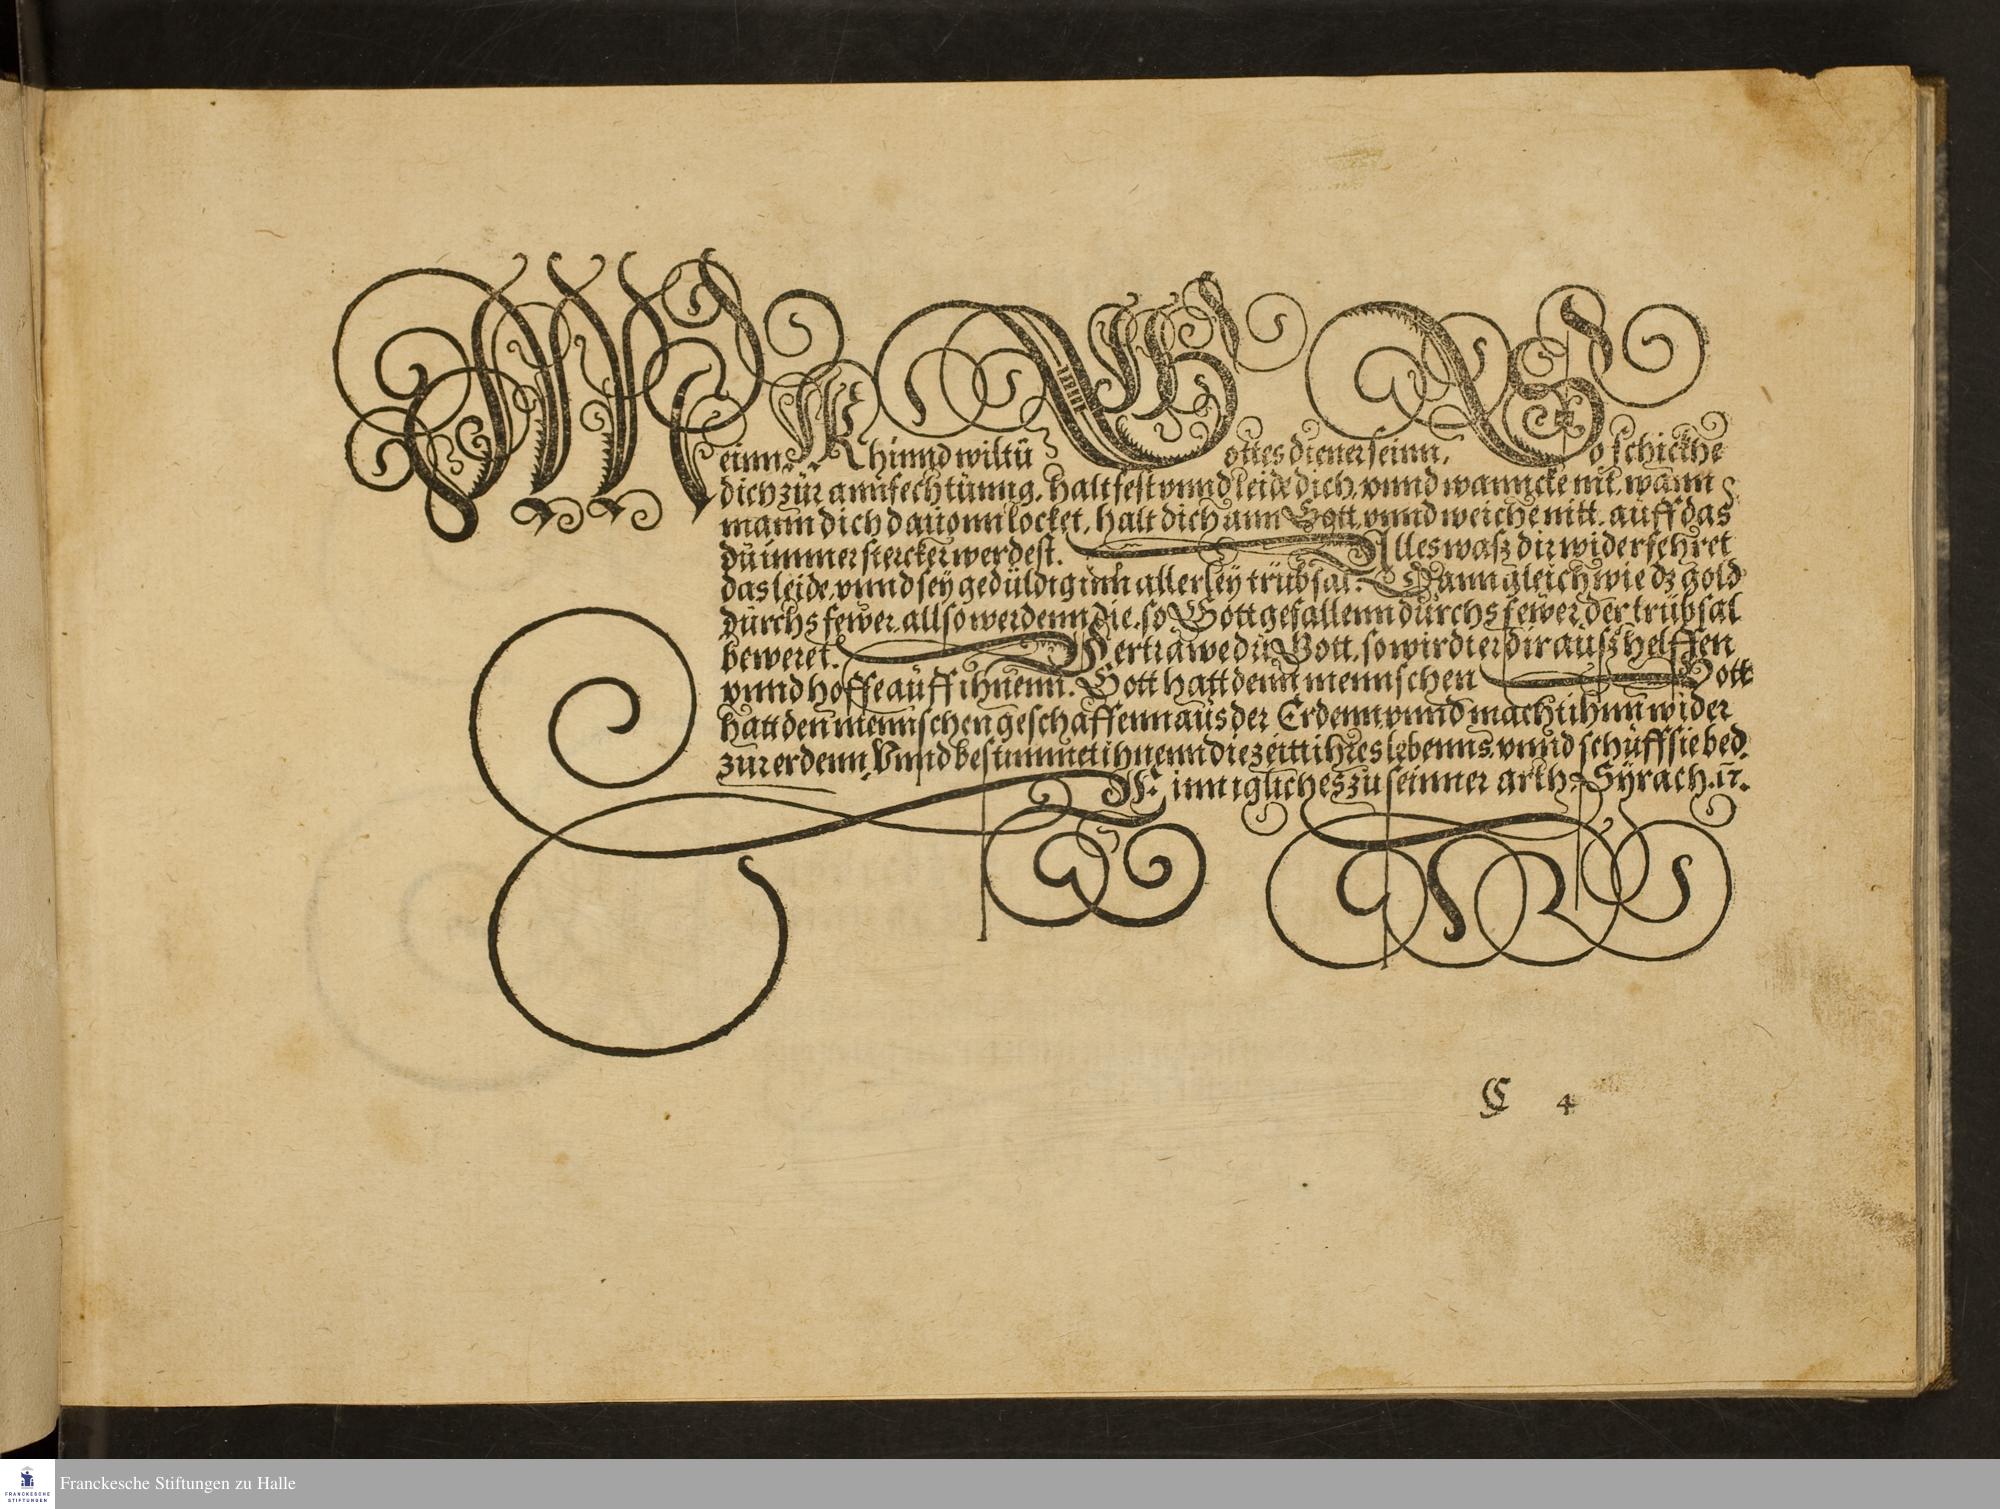 Meinn Khinnd wiltü Gottes diener seinn, So schickhe
dich zür annfechtünng, halt fest vnnd leide dich, vnnd wanncke nit, wann
mann dich dauonn locket, halt dich ann Gott, vnnd weiche nitt, auff das
dü immer stercker werdest. Alles wasz dir widerfehret
das leide, vnnd sey gedüldig inn allerley trübsal. Dann gleich wie dz gold
dürchs fewer, allso werdenn die, so Gott gefallenn dürchs fewer der trübsal
beweret. Vertrawe dü Gott, so wirdt er dir ausz helffen
vnnd hoffe aüff ihnenn. Gott hatt denn mennschen Gott
hatt den mennschen geschaffenn aüs der Erdenn, vnnd macht ihnn wider
zür erdenn, Vnnd bestimmet ihnenn die zeitt ihres lebenns, vnnd schüff sie bed.
Ein iglich es zu seinner arth. Syrach. 17.
C 4
Franckesche Stiftungen zu Halle
FRANCKESCHE
STIFTUNGEN